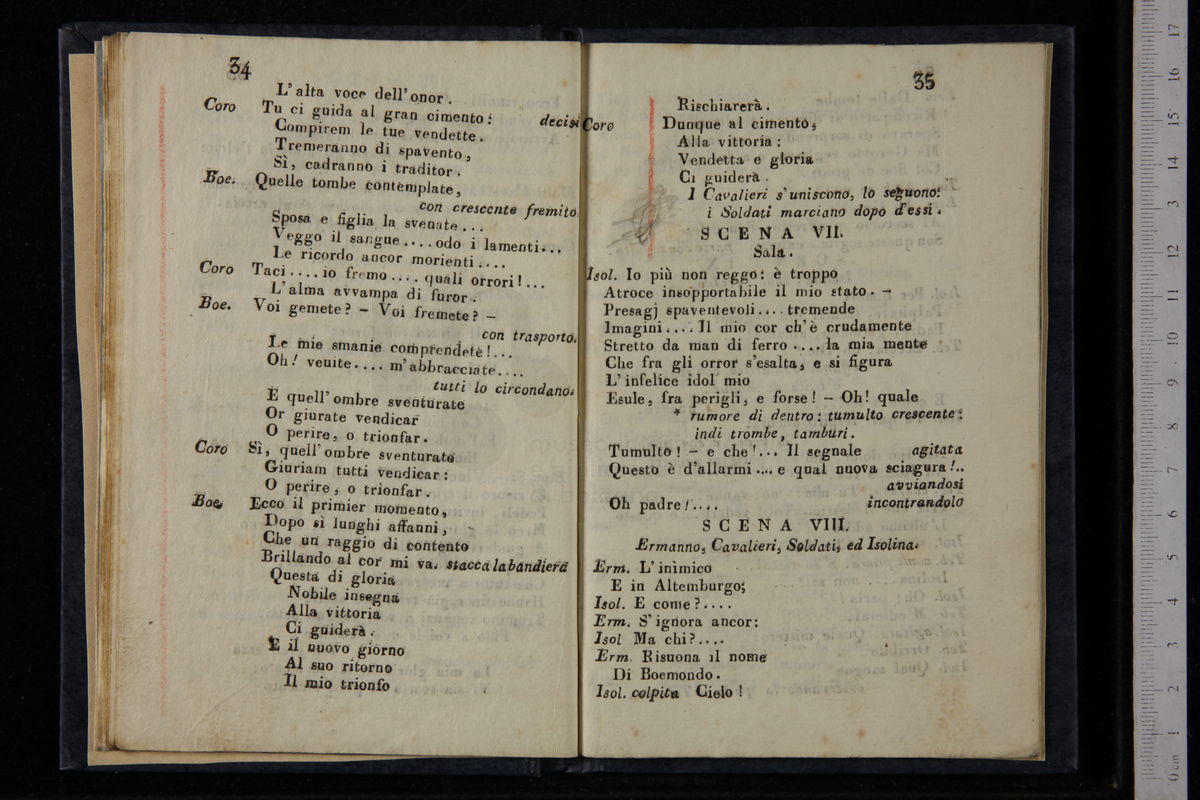 34
L'alta voce dell'onor.
Coro Tu ci guida al gran cimento: decisi
Compirem le tue vendette.
Tremeranno di spavento,
Sì, cadranno i traditor.
Boe. Quelle tombe contemplate,
con crescente fremito
Sposa e figlia la svenate...
Veggo il sangue....odo i lamenti...
Le ricordo ancor morienti....
Coro Taci....io fremo....quali orrori!...
L'alma avvampa di furor.
Boe. Voi gemete? – Voi fremete? –
con trasporto.
Le mie smanie comprendete!...
Oh! venite.... m'abbracciate....
tutti lo circondano.
E quell'ombre sventurate
Or giurate vendicar
O perire, o trionfar.
Coro Sì, quell'ombre sventurate
Giuriam tutti vendicar:
O perire, o trionfar.
Boe. Ecco il primier momento,
Dopo sì lunghi affanni,
Che un raggio di contento
Brillando al cor mi va. stacca la bandiera
Questa di gloria
Nobile insegna
Alla vittoria
Ci guiderà.
E il nuovo giorno
Al suo ritorno
Il mio trionfo
35
Rischiarerà.
Coro Dunque al cimento,
Alla vittoria:
Vendetta e gloria
Ci guiderà.
I Cavalieri s'uniscono, lo seguono:
i Soldati marciano dopo d'essi.
SCENA VII.
Sala.
Isol. Io più non reggo: è troppo
Atroce insopportabile il mio stato. –
Presagj spaventevoli.... tremende
Imagini.... Il mio cor ch'è crudamente
Stretto da man di ferro.... la mia mente
Che fra gli orror s'esalta, e si figura
L'infelice idol mio
Esule, fra perigli, e forse! – Oh! quale
* rumore di dentro: tumulto crescente:
indi trombe, tamburi.
Tumulto! – e che!... Il segnale agitata
Questo è d'allarmi.... e qual nuova sciagura!..
avviandosi
Oh padre!.... incontrandolo
SCENA VIII.
Ermanno, Cavalieri, Soldati, ed Isolina.
Erm. L'inimico
E in Altemburgo;
Isol. E come?....
Erm. S'ignora ancor:
Isol Ma chi?....
Erm. Risuona il nome
Di Boemondo.
Isol. colpita Cielo!